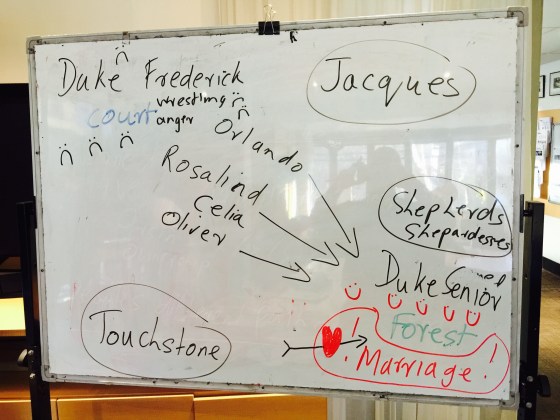 Duke Frederick
Jacques
court wrestling
anger
Orlando
Rosalind
Celia
Oliver
Shepherds
Shepardesses
Duke Senior
Forest
! Marriage!
Touchstone